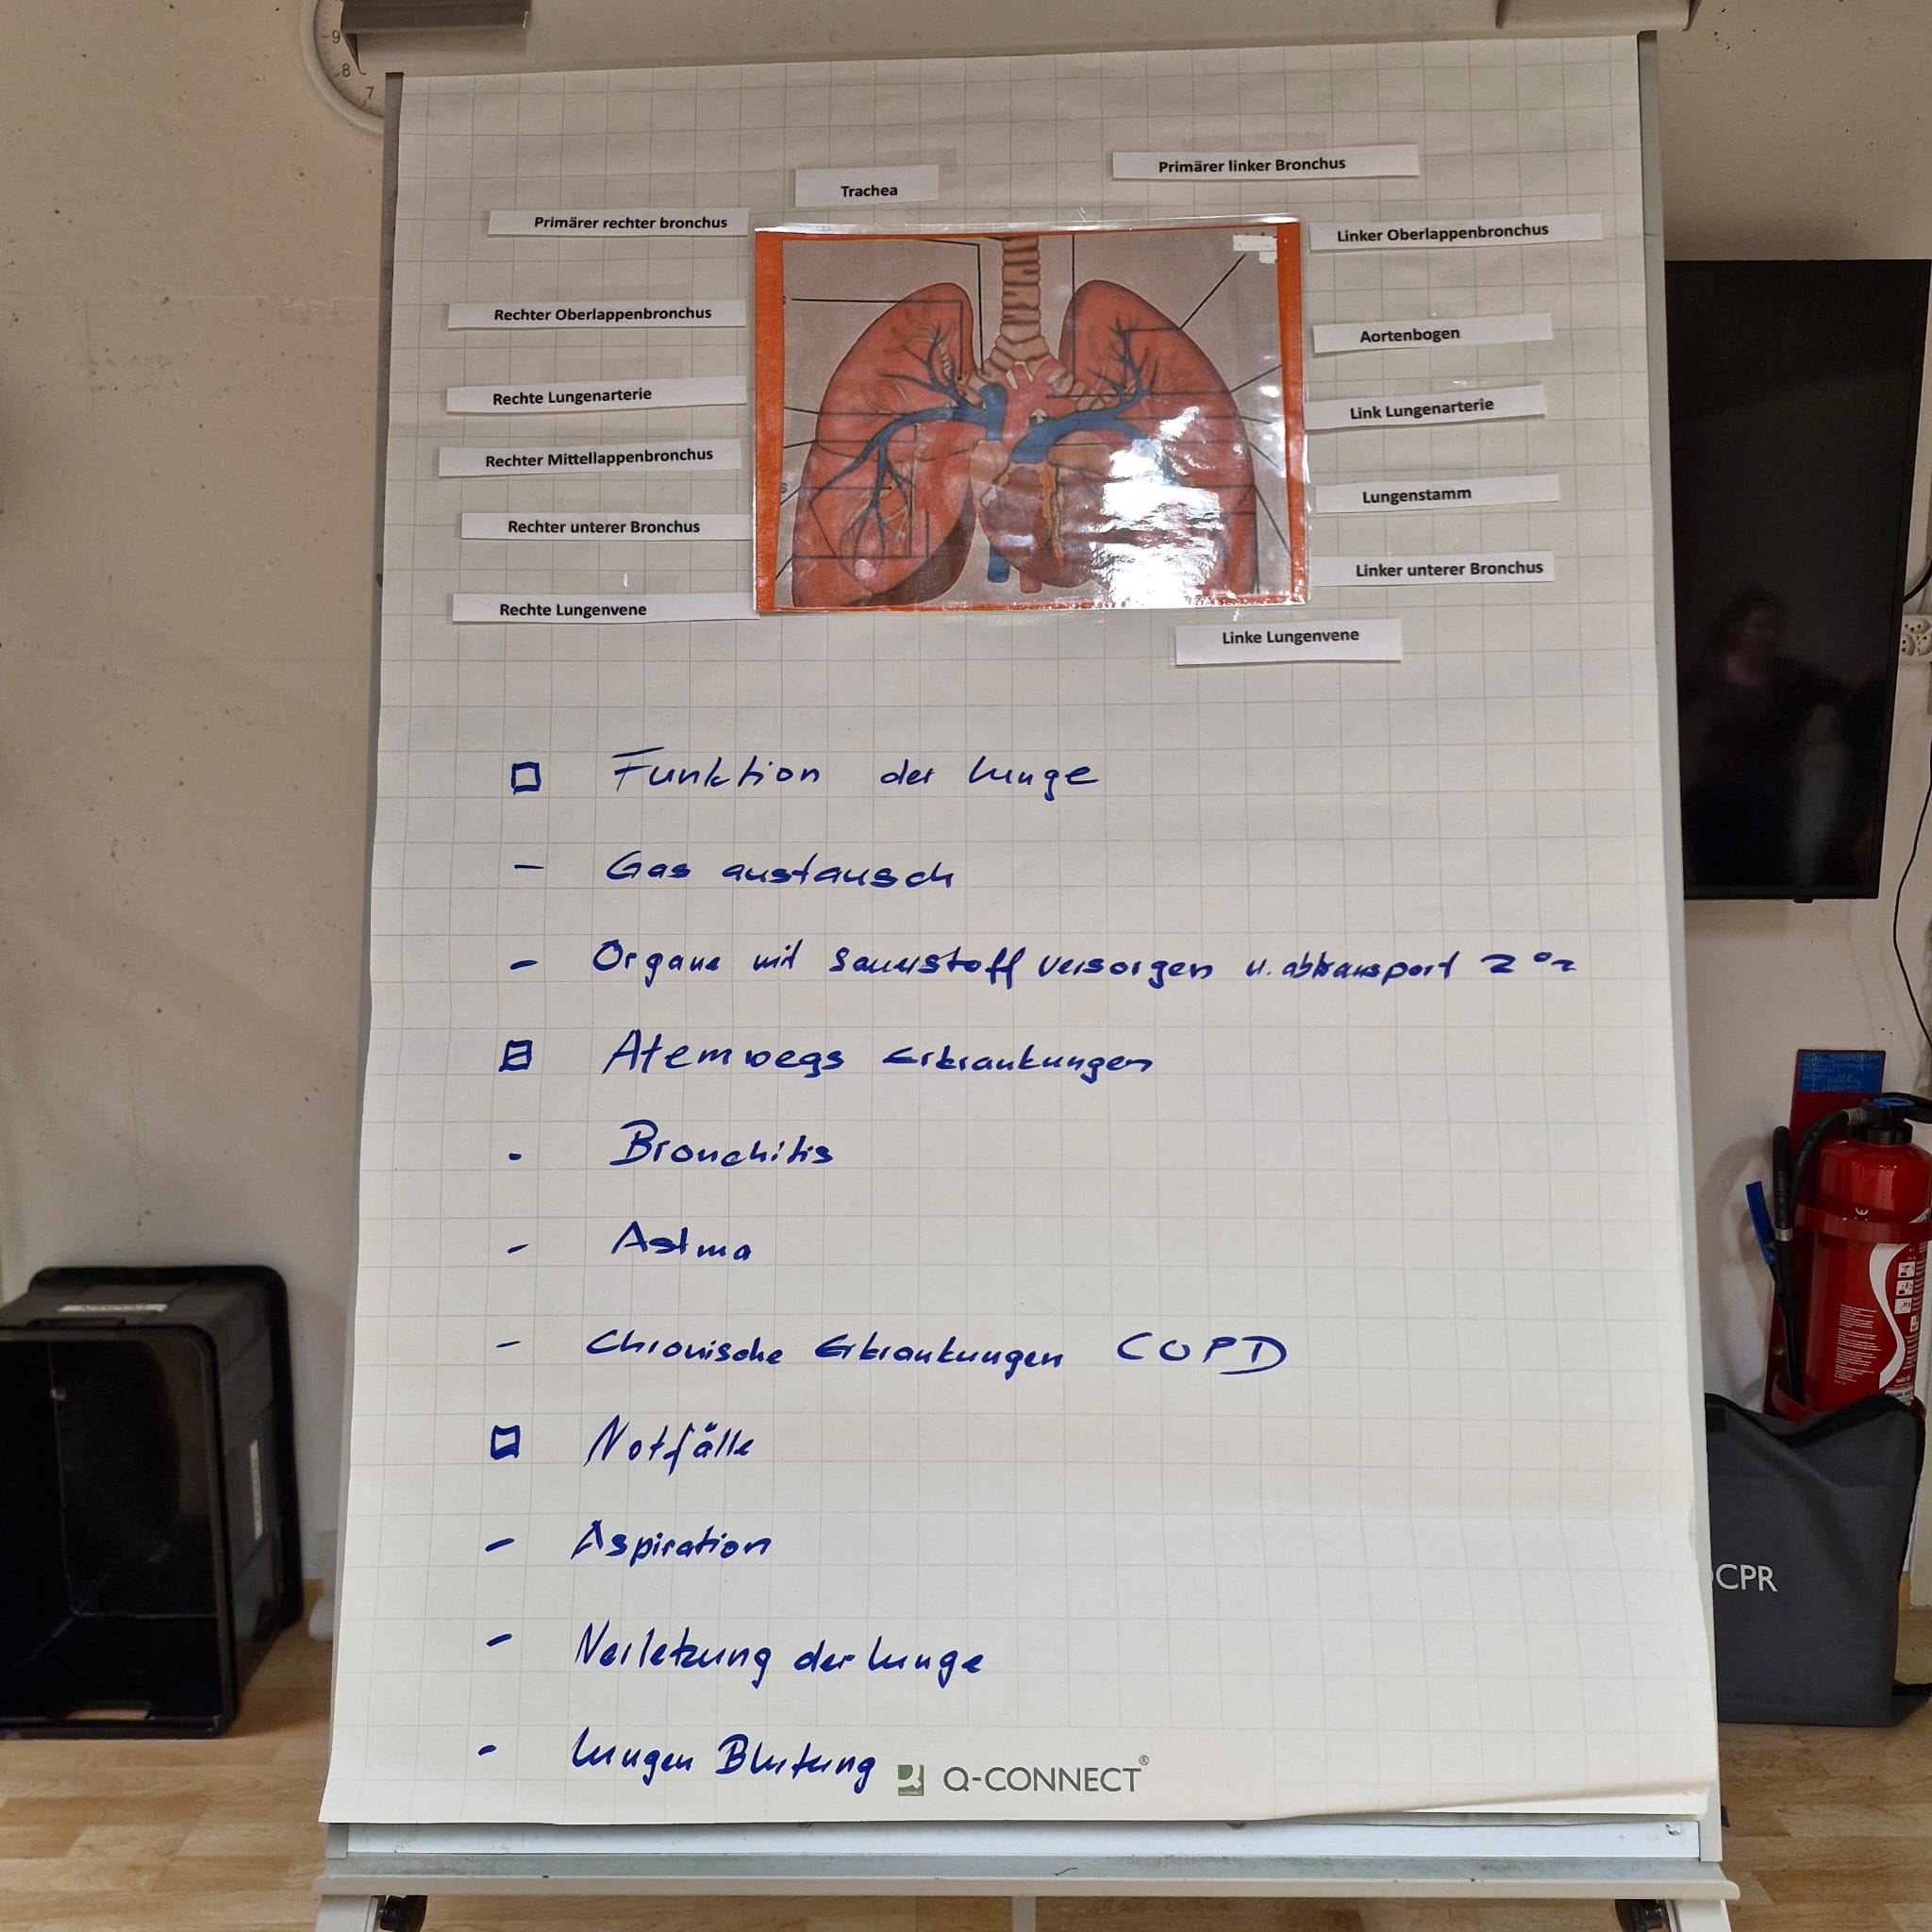 9
8
7
Trachea
Primärer linker Bronchus
Primärer rechter bronchus
Linker Oberlappenbronchus
Rechter Oberlappenbronchus
Aortenbogen
Rechte Lungenarterie
Link Lungenarterie
Rechter Mittellappenbronchus
Lungenstamm
Rechter unterer Bronchus
Linker unterer Bronchus
Rechte Lungenvene
Linke Lungenvene
Funktion der Lunge
- Gas austausch
- Organe mit Sauerstoff versorgen u. abtransport
Atemwegs Erkrankungen
- Bronchitis
- Astma
- Chronische Erkrankungen COPD
Notfälle
- Aspiration
- Verletzung der Lunge
- Lungen Blutung
Q-CONNECT®
CPR